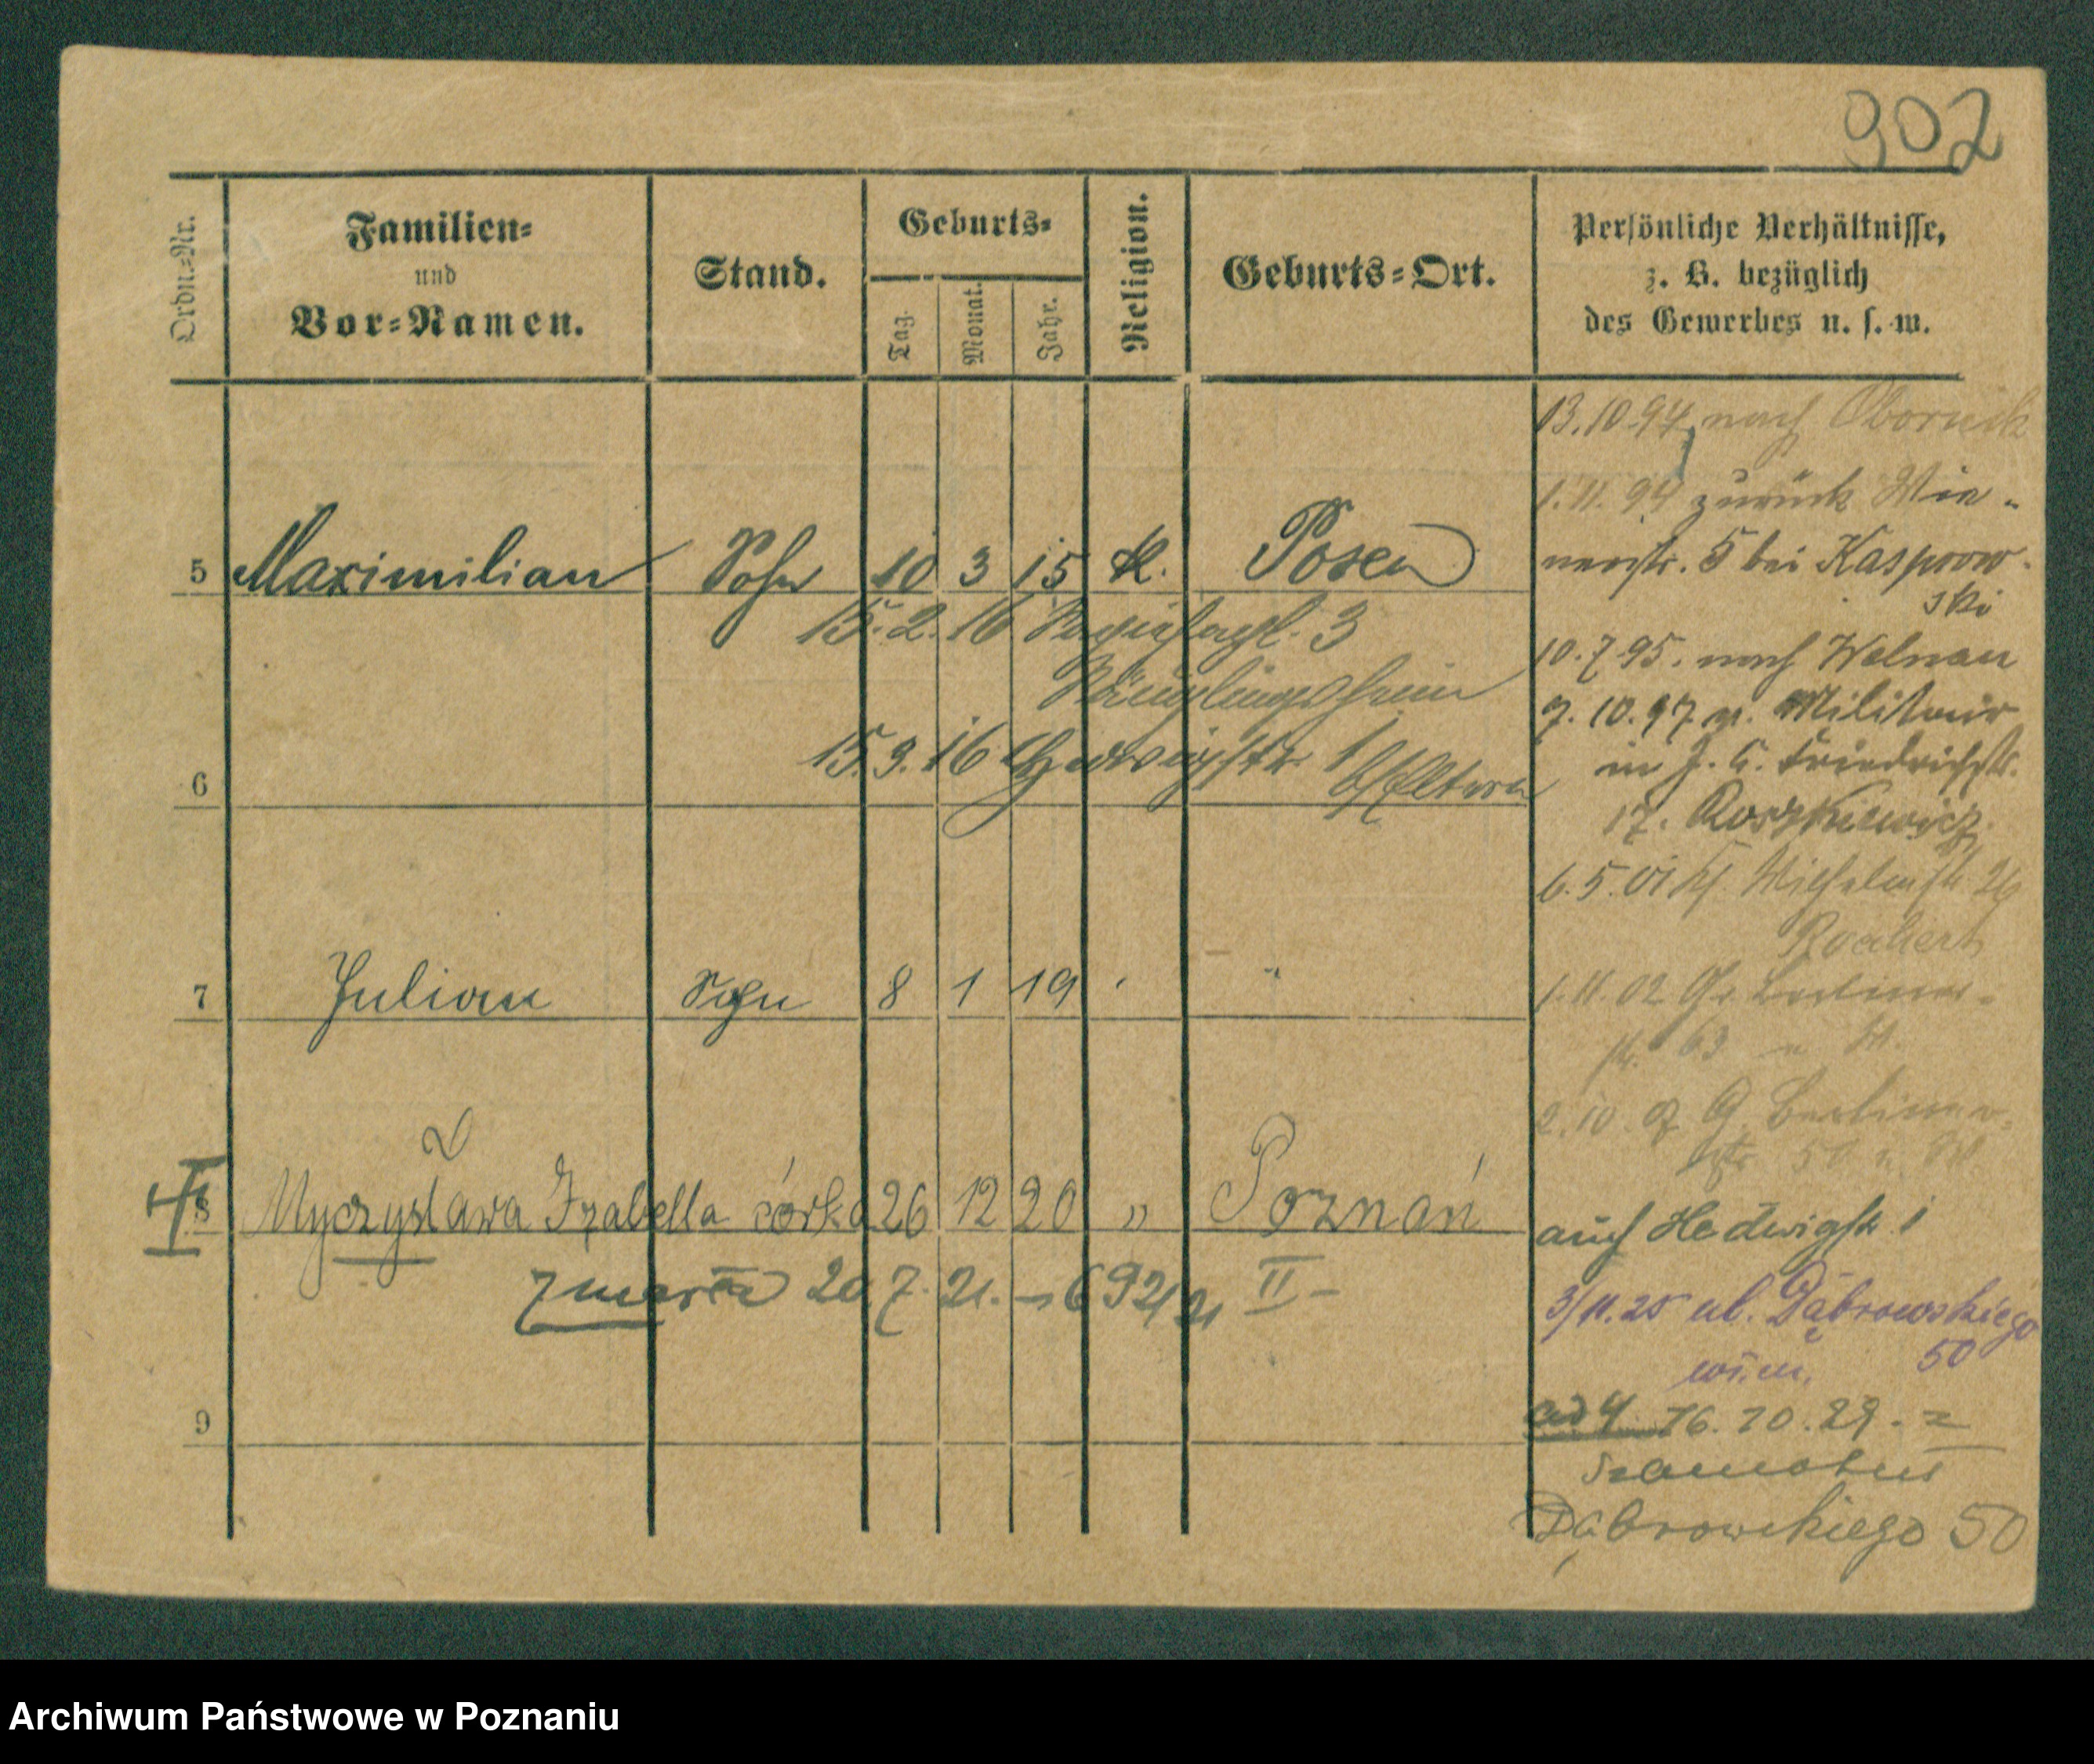 902
Ordn.-Nr.
Familien-
und
Vor-Namen.
Stand.
Geburts-
Tag.
Monat.
Jahr.
Religion.
Geburts-Ort.
Persönliche Verhältnisse,
z. B. bezüglich
des Gewerbes u. s. w.
5 Maximilian Sohn 10 3 15 K. Posen
15. 2. 16 3
Säuglingsheim
15. 3. 16 Hedwigstr. 1
b/Eltern
6
7 Julian Sohn 8 1 19 " "
8 Myczysława Izabella córka 26 12 20 " Poznań
zmarła 20 7. 21. – 692/21 II –
9
13.10.94 nach Obornik
1.11.94 zurück Wie-
nerstr. 5 bei Kasprow-
ski
10.7.95. nach Welnau
9.10.97 v. Militair
in J. C. Friedrichstr.
17. Roszkiewicz
6.5.01 Wilhelmstr. 26
1.11.02 Gr. Berliner-
str. 63
2.10.07 G. Berliner-
str. 50
auch Hedwigstr. 1
3/11.25 ul. Dąbrowskiego
50
w.m.
ad 4 16.10.29. z
Szamotuł
Dąbrowskiego 50
Archiwum Państwowe w Poznaniu